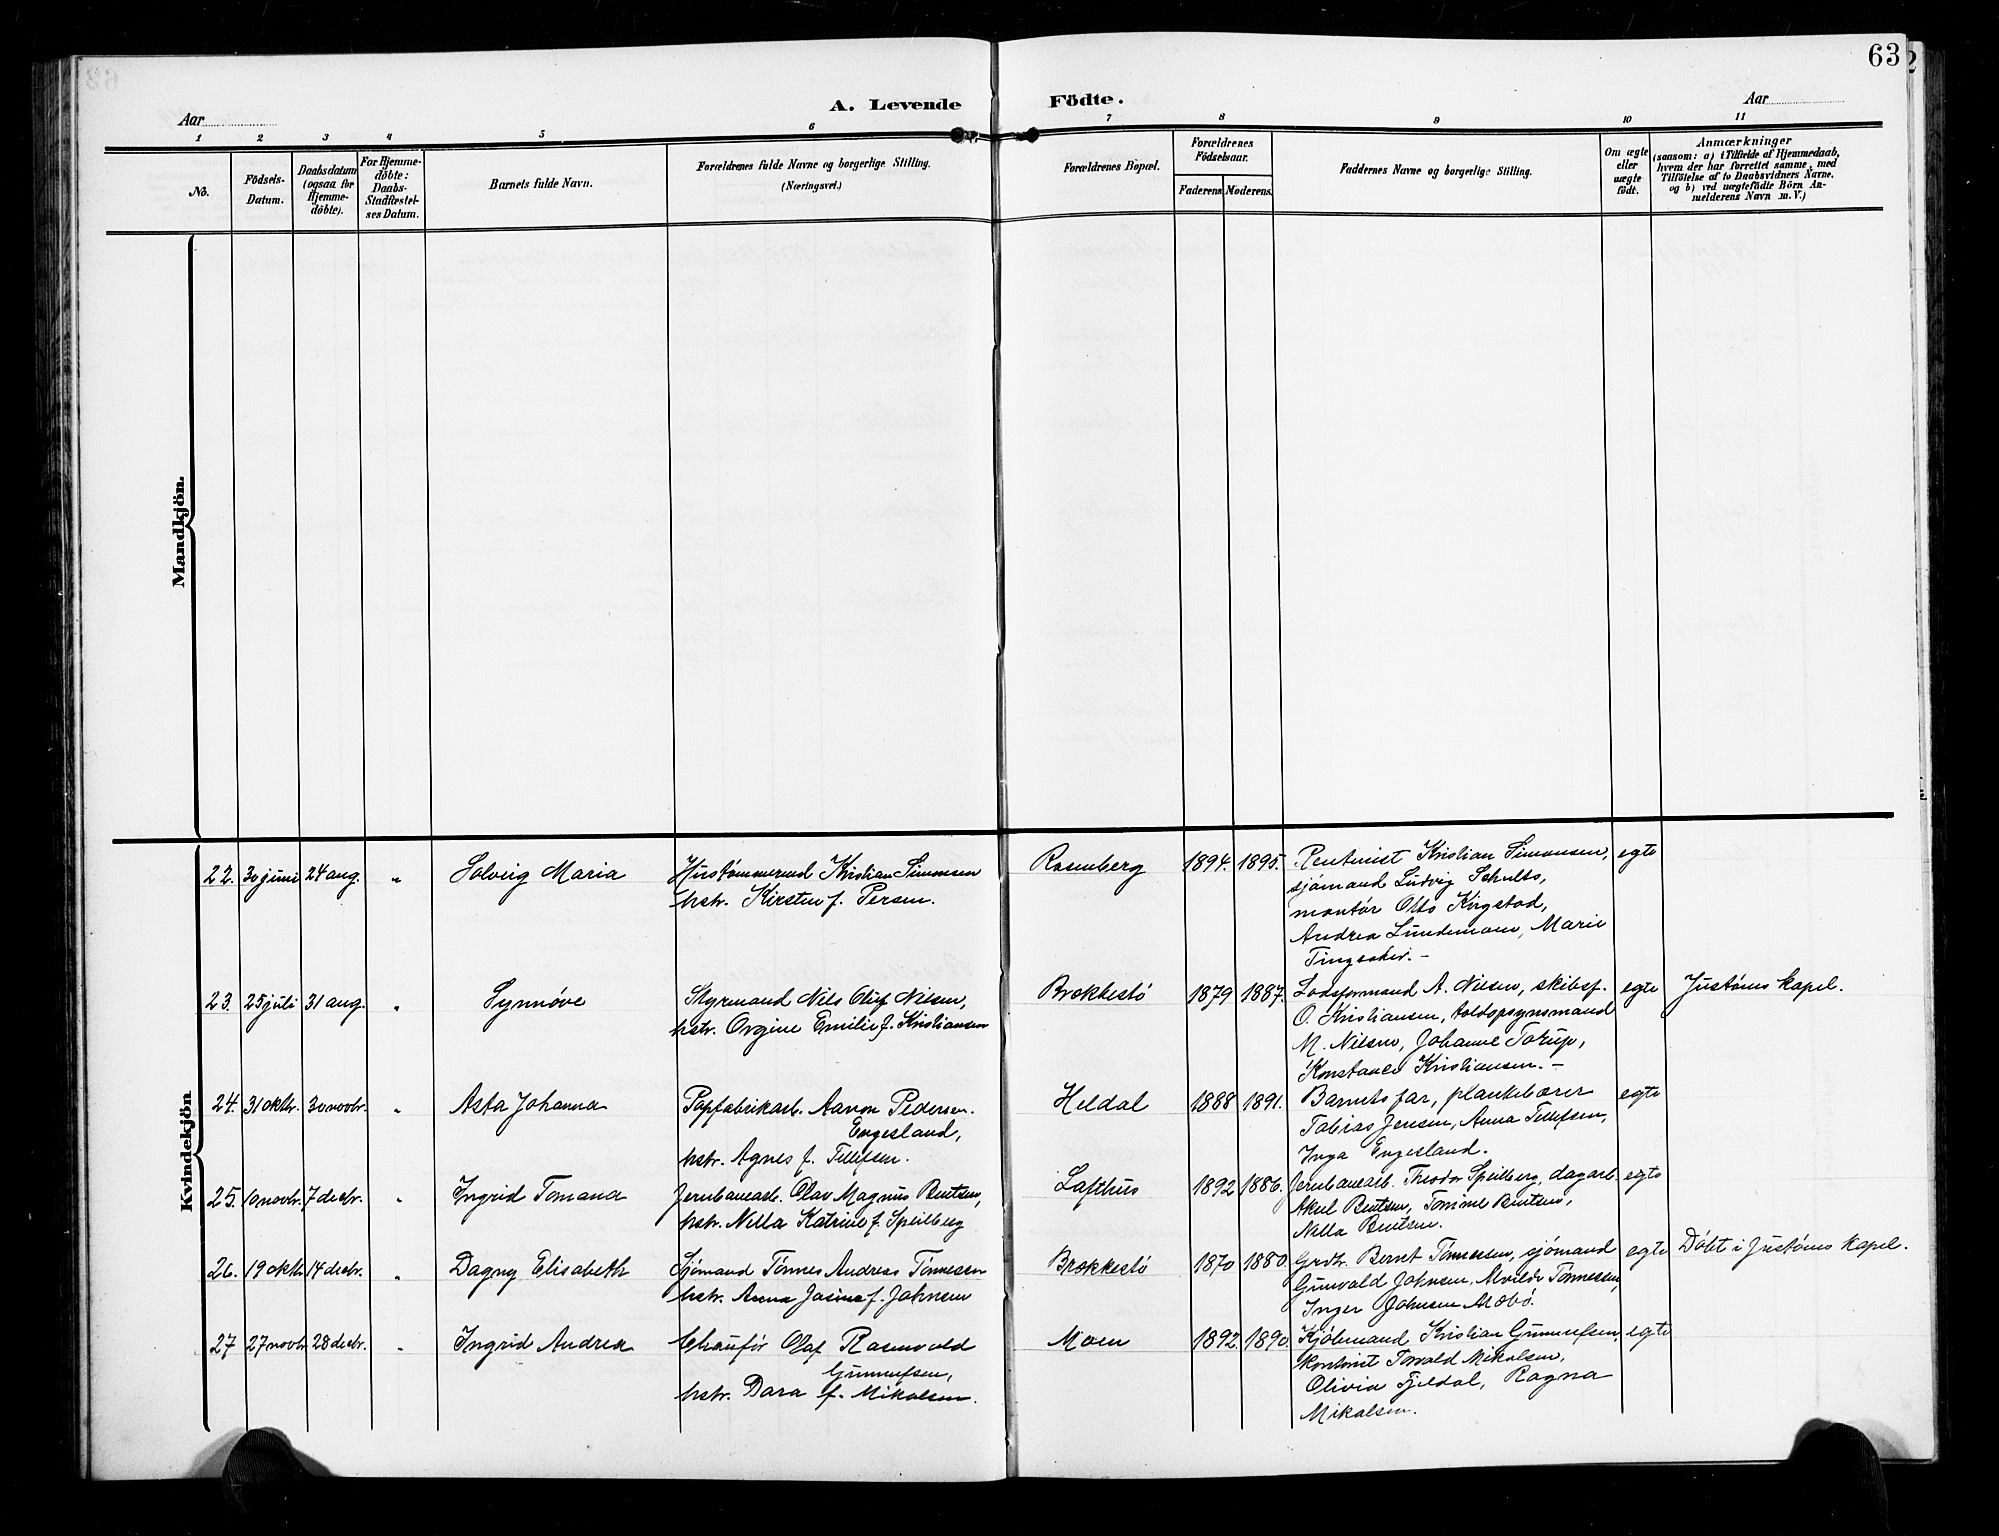 63
A. Levende Födte.
Aar
Aar
1 2 3 4 5 6 7 8 9 10 11
No.
Födsels-
Datum.
Daabsdatum
(ogsaa for
Hjemme-
döbte).
For Hjemme-
döbte:
Daabs-
Stadfæstel-
ses Datum.
Barnets fulde Navn.
Forældrenes fulde Navne og borgerlige Stilling.
(Næringsvei.)
Forældrenes Bopæl.
Forældrenes
Födselsaar.
Faderens.
Moderens.
Faddernes Navne og borgerlige Stilling.
Om ægte
eller
uægte
födt.
Anmærkninger
(saasom: a) i Tilfælde af Hjemmedaab,
hvem der har forrettet samme, med
Tilföielse af to Daabsvidners Navne.
og b) ved uægtefödte Börn An-
melderens Navn m. V.)
Mandkjön.
Kvindekjön
22. 30 juni 24 aug. " Solveig Maria
Hustømmermand Kristian Simonsen
hstr. Kirsten f. Persen.
Rosenberg 1894. 1895.
Rentenist Kristian Simonsen,
sjömand Ludvig Schults,
montör Otto Kirgstad,
Andrea Lundemoen, Marie
Tingsaker. –
egte
23. 25 juli 31 aug. " Synnöve
Styrmand Nils Oluf Nilsen,
hstr. Orgine Emilie f. Kristiansen
Brekkestö 1879 1887.
Lodsformand A. Nilsen, skibsf.
O. Kristiansen, toldopsynsmand
M. Nilsen, Johanne Torup,
Konstance Kristiansen. –
egte
Justöens kapel.
24. 31 oktbr. 30 novbr. " Asta Johanna
Papfabrikarb. Aanon Pedersen
Engesland,
hstr. Agnes f. Tellefsen.
Heldal 1888 1891.
Barnets far, plankebærer
Tobias Jensen, Anna Tellefsen,
Inga Engesland.
egte
25. 10 novbr. 7 decbr. " Ingrid Tomana
Jernbanearb. Olav Magnus Bentsen,
hstr. Nella Katrine f. Speilberg
Lofthus 1892 1886.
Jernbanearb. Theodor Speilberg, dagarb.
Aksel Bentsen, Tomine Bentsen,
Nella Bentsen.
egte
26. 19 oktbr. 14 decbr. " Dagny Elisabeth
Sjömand Tönnes Andreas Tönnessen
hstr. Anna Josine f. Johnsen
Brekkestö 1870 1880.
Grdbr. Bernt Tönnessen, sjömand
Gunvald Johnsen, Alvilde Tönnessen,
Inger Johnsen Aabö.
egte
Döbt i Justöens kapel.
27 27 novbr 28 decbr. " Ingrid Andrea
Chauför Olaf Rosenvold
Gunnufsen,
hstr. Dora f. Mikalsen.
Moen 1892. 1890.
Kjöbmand Kristian Gunnufsen,
kontorist Torvald Mikalsen,
Olivia Fjeldal, Ragna
Mikalsen.
egte